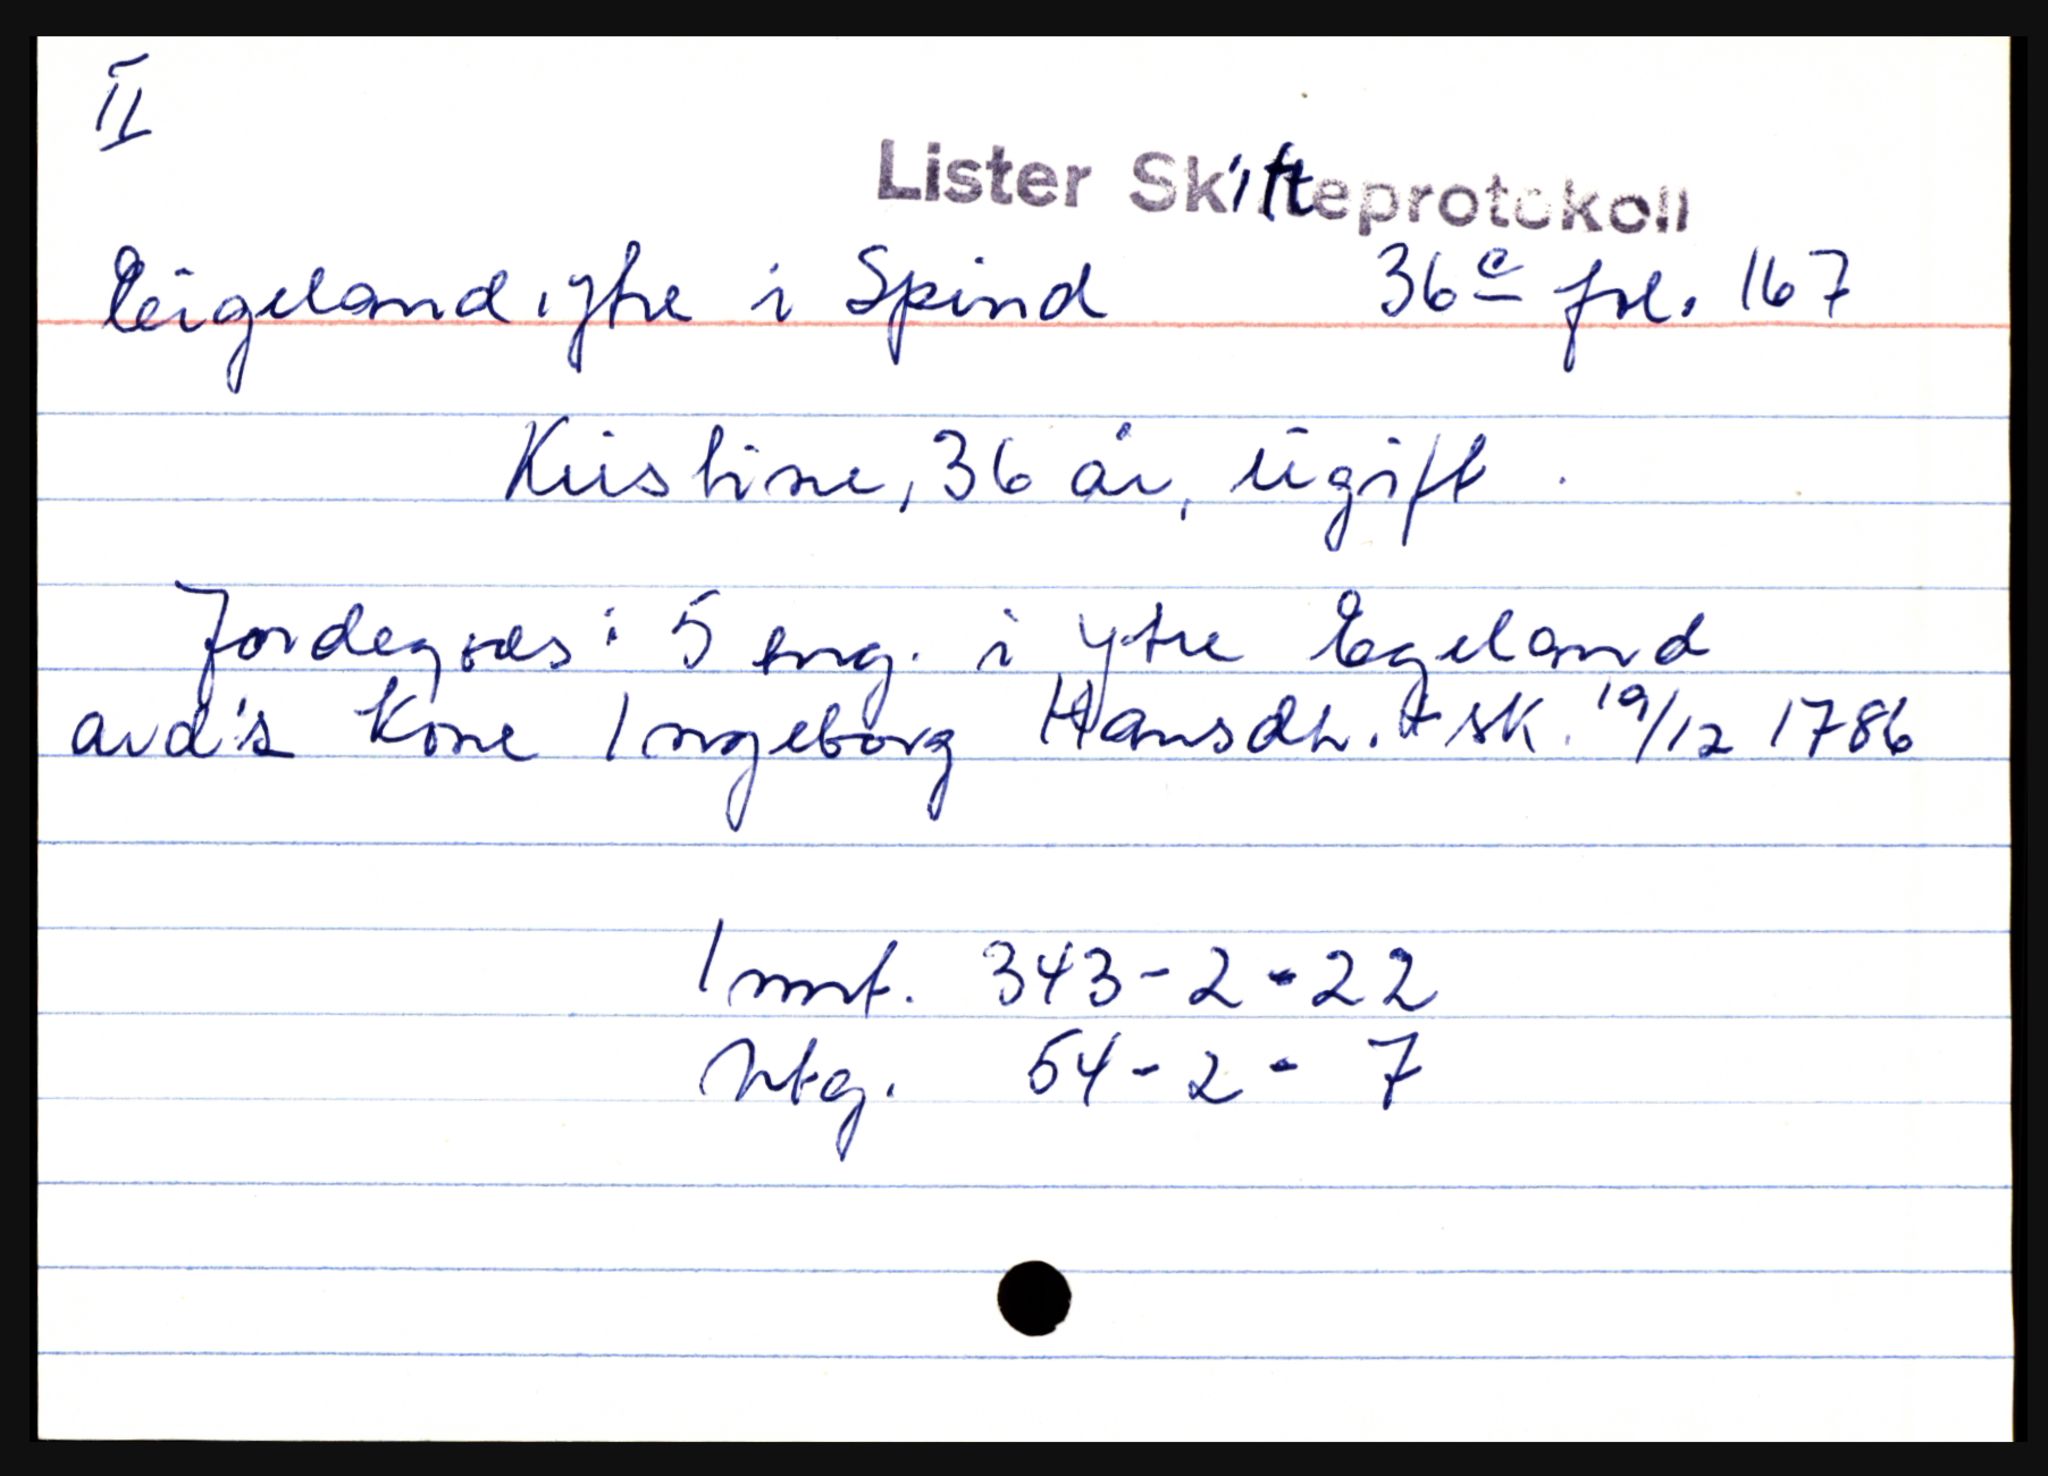 II
Lister Skifteprotokoll
Eigeland, ytre i Spind 36c fol. 167
Kristine, 36 år, ugift.
Jordegods: 5 eng. i ytre Egeland
avd's kone Ingeborg Hansdtr. + sk. 19/12 1786
Innt. 343-2-22
Utg. 54-2-7